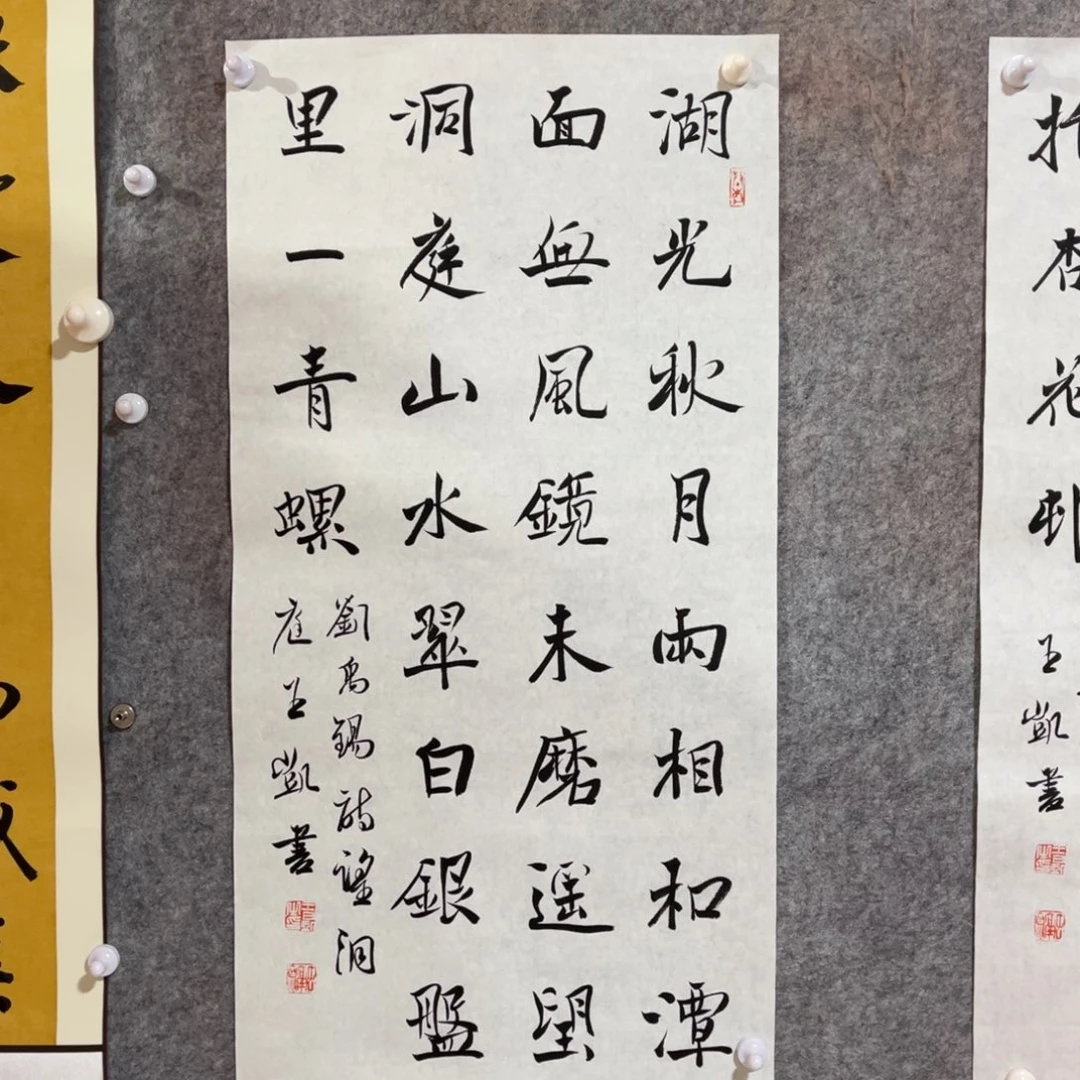 杏花
王凱書
湖光秋月兩相和潭
面無風鏡未磨遥望
洞庭山水翠白銀盤
里一青螺
劉禹錫詩望洞
庭王凱書